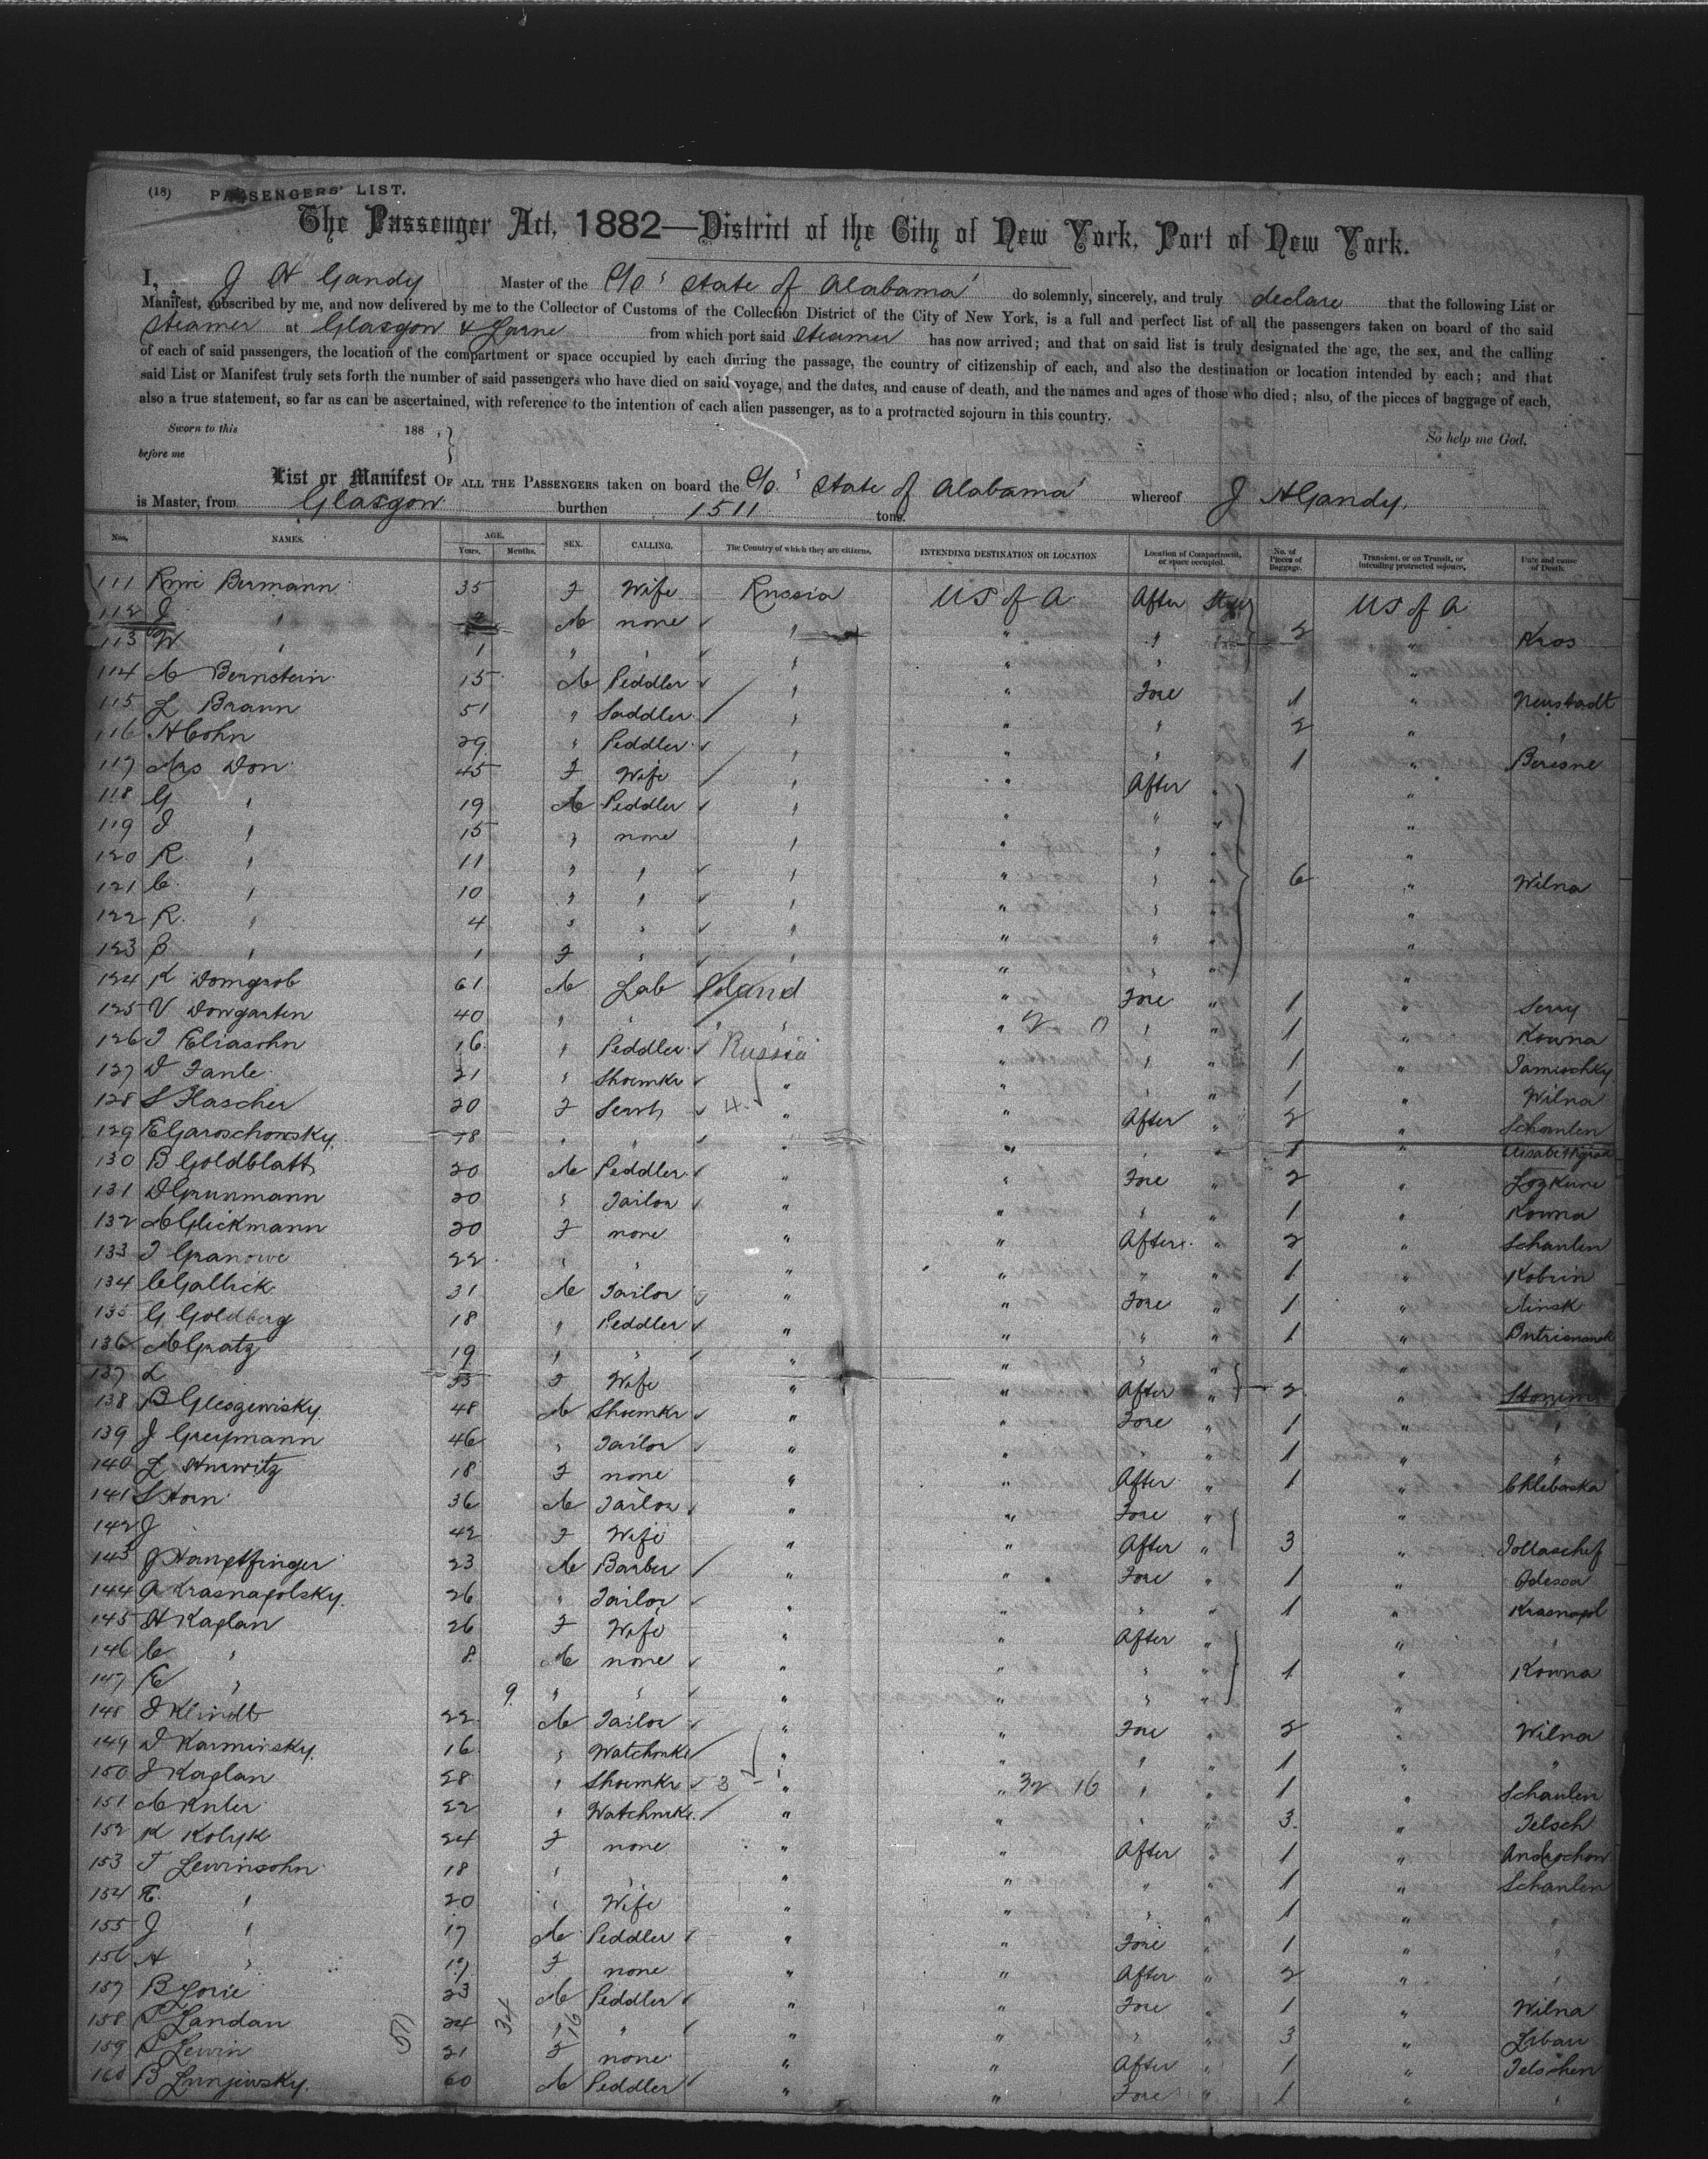 (18) PASSENGERS' LIST.
The Passenger Act, 1882—District of the City of New York, Port of New York.
I, J H Gandy Master of the S/S "State of Alabama" do solemnly, sincerely, and truly declare that the following List or
Manifest, subscribed by me, and now delivered by me to the Collector of Customs of the Collection District of the City of New York, is a full and perfect list of all the passengers taken on board of the said
Steamer at Glasgow & Larne from which port said Steamer has now arrived; and that on said list is truly designated the age, the sex, and the calling
of each of said passengers, the location of the compartment or space occupied by each during the passage, the country of citizenship of each, and also the destination or location intended by each; and that
said List or Manifest truly sets forth the number of said passengers who have died on said voyage, and the dates, and cause of death, and the names and ages of those who died; also, of the pieces of baggage of each,
also a true statement, so far as can be ascertained, with reference to the intention of each alien passenger, as to a protracted sojourn in this country.
Sworn to this 188 , So help me God.
before me
List or Manifest OF ALL THE PASSENGERS taken on board the S/S "State of Alabama" whereof J H Gandy,
is Master, from Glasgow burthen 1511 tons.
Nos. NAMES. AGE. Years. Months. SEX. CALLING. The Country of which they are citizens. INTENDING DESTINATION OR LOCATION Location of Compartment, or space occupied. No. of Pieces of Baggage. Transient, or on Transit, or intending protracted sojourn. Date and cause of Death.
111 Bermann 35 F Wife Russia US of A After US of A
112 J " M none " " " 2 "
113 W " 1 " " " " " " Kros
114 M Bernstein 15 M Peddler " " Fore 1 " Neustadt
115 L Braun 51 " Saddler " " " 2 " "
116 H Cohn 29 " Peddler " " " 1 " Beresne
117 Mrs Don 45 F Wife " " After " "
118 G " 19 M Peddler " " " " "
119 J " 15 " none " " " " "
120 R " 11 " " " " " " 6 " Wilna
121 C " 10 " " " " " " "
122 R " 4 " " " " " " "
123 B " 1 F " " " " " "
124 K Domgrob 61 M Lab Poland " Fore " 1 " Serry
125 V Dowgarten 40 " " " " " " 1 " Kowna
126 J Eliasohn 16 " Peddler Russia " " " 1 "
127 D Fanle 21 " Shoemkr " " " " 1 " Wilna
128 S Flascher 20 F Servt " " After " 2 " Schaulen
129 E Garoschowsky 18 " " " " " " 1 "
130 B Goldblatt 20 M Peddler " " Fore " 2 "
131 D Grunmann 20 " Tailor " " " " 1 " Kowna
132 M Glickmann 20 F none " " After " 2 " Schaulen
133 J Granowe 22 " " " " " " 1 " Kobrin
134 C Gallick 31 M Tailor " " Fore " 1 " Minsk
135 G Goldberg 18 " Peddler " " " " 1 "
136 M Gratz 19 " " " " " " "
137 L 33 F Wife " " After " 2 "
138 B Gleogewisky 48 M Shoemkr " " Fore " 1 " "
139 J Greymann 46 " Tailor " " " " 1 " "
140 L Hurwitz 18 F none " " After " 1 " Chlebaska
141 S Horn 36 M Tailor " " Fore " "
142 J 42 F Wife " " After " 3 "
143 J Hamptfinger 23 M Barber " " Fore " 1 " Odessa
144 A Krasnapolsky 26 " Tailor " " " " 1 " Krasnapol
145 H Kaplan 26 F Wife " " After " "
146 C " 8 M none " " " " 1 " Kowna
147 E " 9 " " " " " " "
148 J Klindt 22 M Tailor " " Fore " 2 " Wilna
149 D Karminsky 16 " Watchmkr " " " " 1 " "
150 J Kaplan 28 " Shoemkr " " " " 1 " Schaulen
151 M Kuler 22 " Watchmkr " " " " 3 " Telsch
152 K Kolyk 24 F none " " After " 1 " Androchow
153 T Lewinsohn 18 " " " " " " 1 " Schaulen
154 E " 20 " Wife " " " " 1 " "
155 J " 17 M Peddler " " Fore " 1 " "
156 A " 17 F none " " After " 2 " "
157 B Lorie 23 M Peddler " " Fore " 1 " Wilna
158 S Landau 24 " " " " " " 3 " Libau
159 S Lewin 21 F none " " After " 1 " Telschen
160 B Lunjewsky 60 M Peddler " " Fore " 1 " "